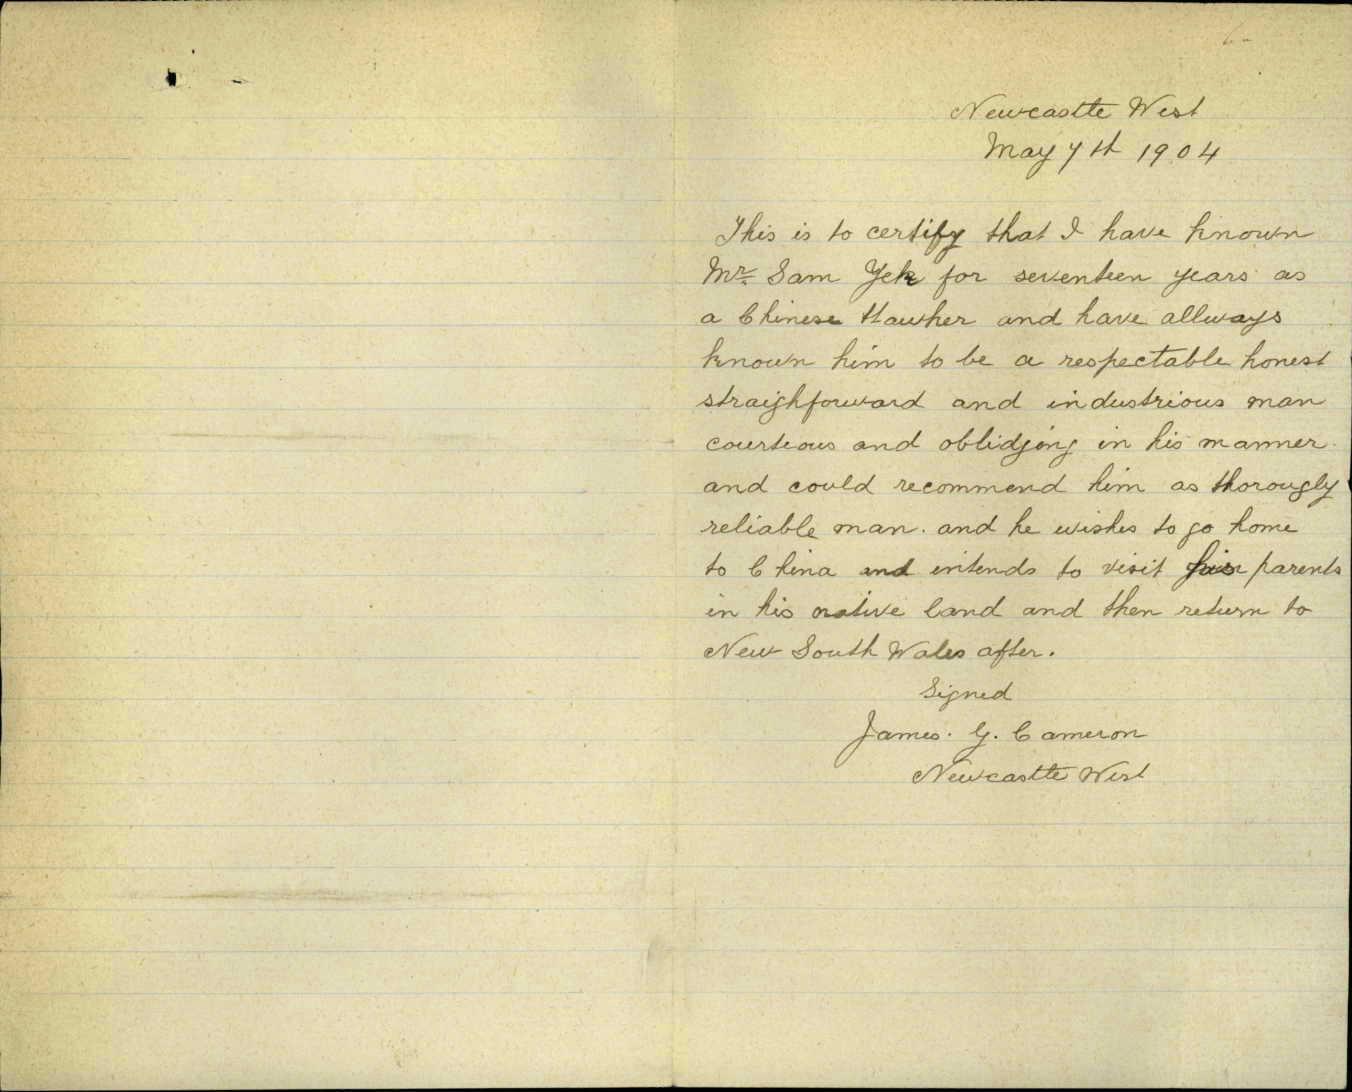 Newcastle West
May 7th 1904
This is to certify that I have known
Mr. Sam Yek for seventeen years as
a Chinese Hawker and have allways
known him to be a respectable honest
straighforward and industrious man
courteous and oblidging in his manner.
and could recommend him as thorougly
reliable man. and he wishes to go home
to China and intends to visit his parents
in his native land and then return to
New South Wales after.
Signed
James. G. Cameron
Newcastle West